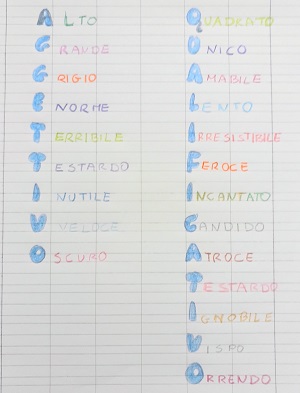 ALTO
GRANDE
GRIGIO
ENORME
TERRIBILE
TESTARDO
INUTILE
VELOCE
OSCURO
QUADRATO
UNICO
AMABILE
LENTO
IRRESISTIBILE
FEROCE
INCANTATO
CANDIDO
ATROCE
TESTARDO
IGNOBILE
VISPO
ORRENDO